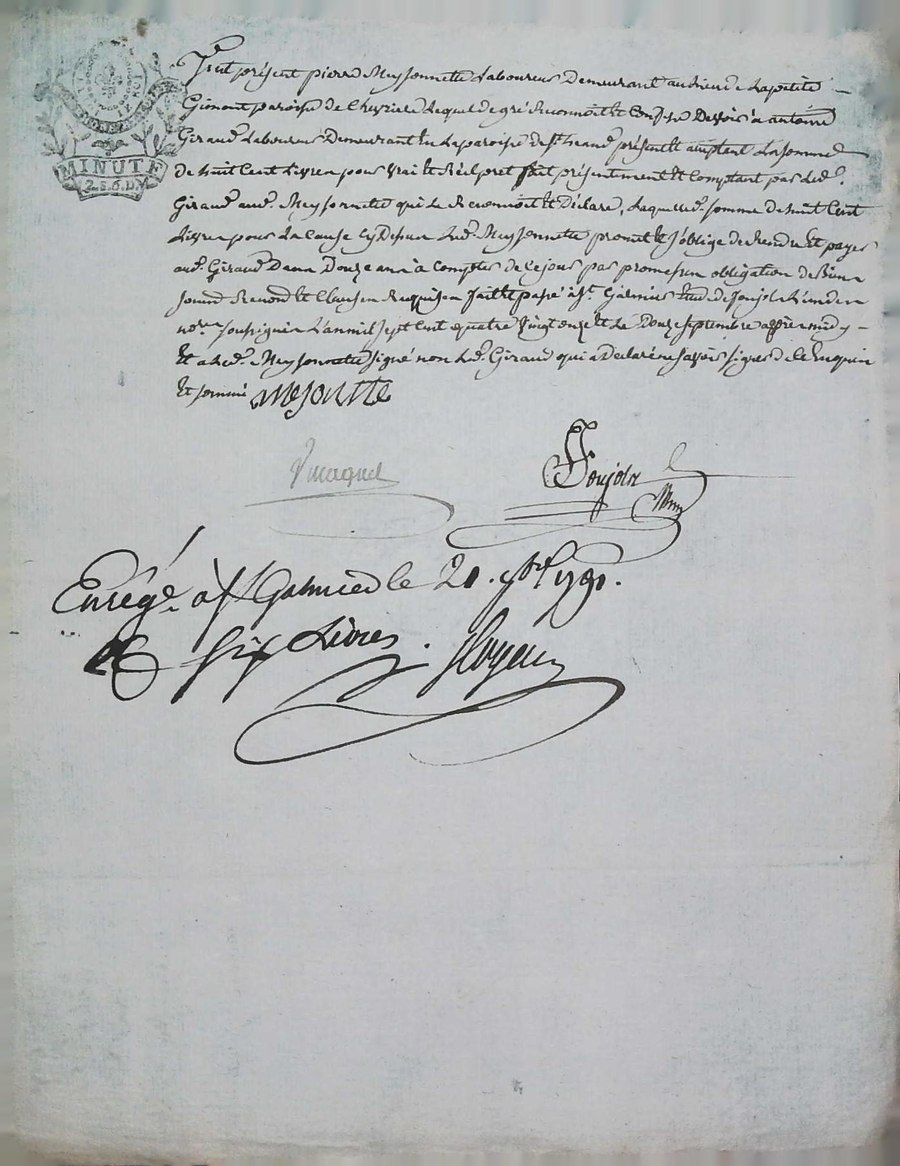 MINUTE
2. S. 6. D.
Fut présent pierre Meyssonnette Laboureur Demeurant au lieu de Lapetite
Gimont paroisse de Chevriere Lequel de gré Reconnoit Et Confesse Devoir a antoine
Giraud Laboureur Demeurant En La paroisse de St présent Et acceptant La somme
de huit Cent Livres pour vrai Et Réel pret fait présentement Et Comptant par Led.
Giraud aud. Meyssonnette qui Le Reconnoit Et Déclare, Laquelle somme de huit Cent
Livres pour La Cause Cy Dessus Led. Meyssonnette promet Et S'oblige de Rendre Et payer
aud. Giraud Dans Douze ans à Compter de Ce jour par promesses obligation de Biens
soumd Renond Et Clauses Requises fait Et passé à St. Galmier Etude de Soujol L'un des
nores soussignés L'an mil sept Cent quatre vingt onze Et Le Douze septembre après midy
Et a Led. Meyssonnette signé non Led. Giraud qui a Declaré ne savoir signer de Ce Enquis
Et sommé mesonette
Soujol
Enregé. à St Galmier le 20. 7bre 1791.
R six Livres.